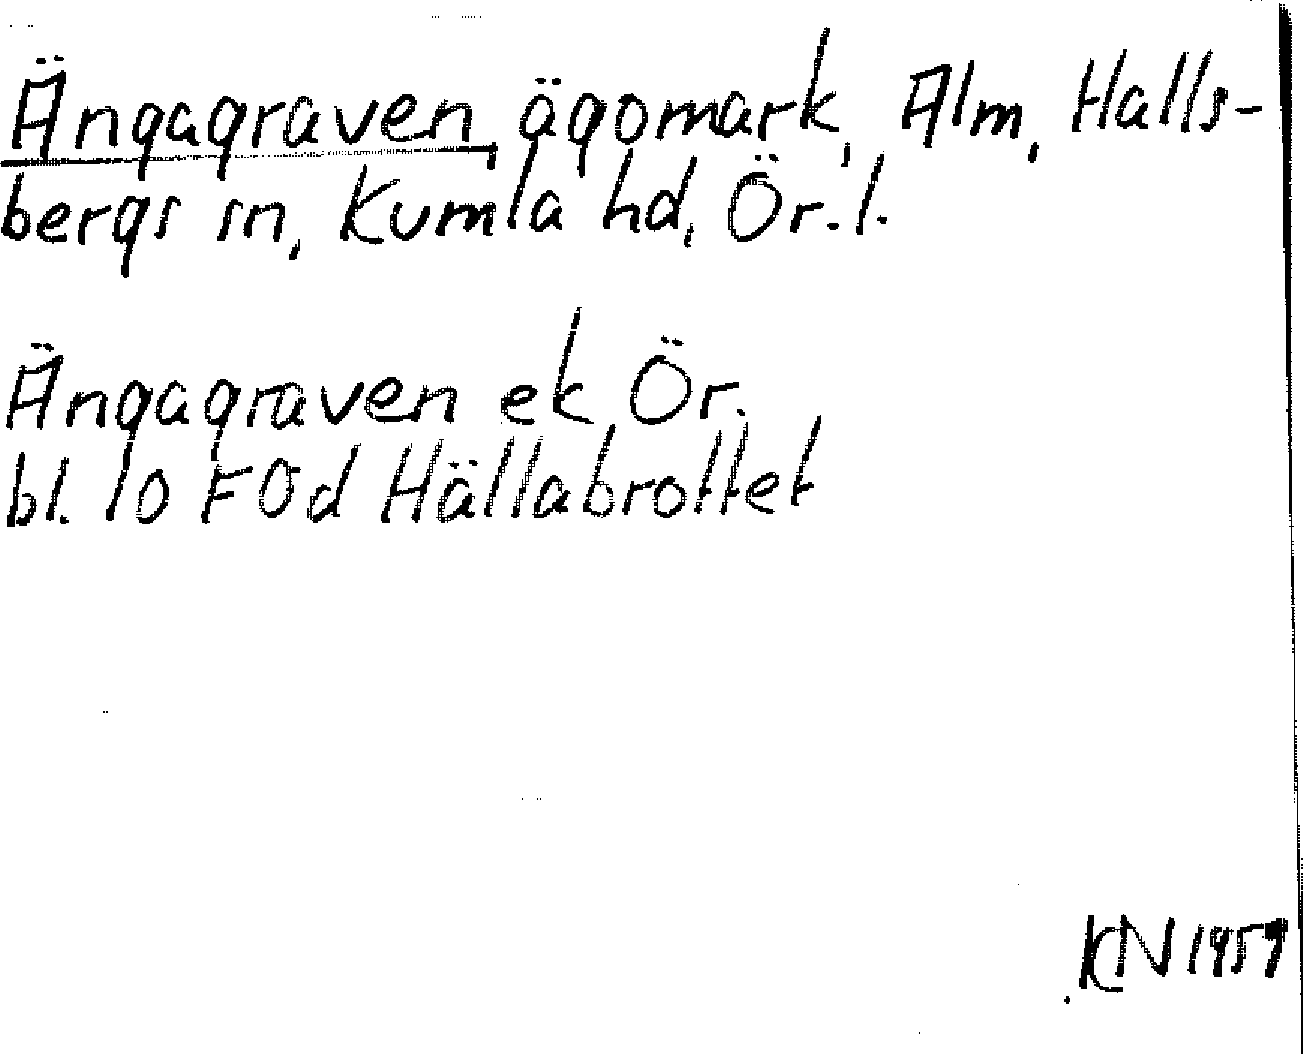 Ängagraven, ägomark, Alm, Halls-
bergs sn, Kumla hd, Ör. l.
Ängagraven ek Ör.
bl. 10 FÖd Hällabrottet
KN 1959